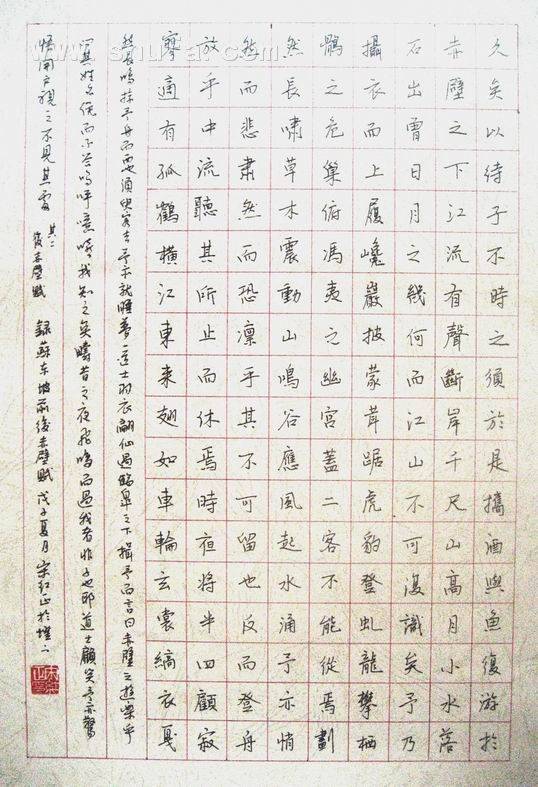 久矣以待子不時之須於是攜酒與魚復游於
赤壁之下江流有聲斷岸千尺山高月小水落
石出曾日月之幾何而江山不可復識矣予乃
攝衣而上履巉巖披蒙茸踞虎豹登虬龍攀栖
鶻之危巢俯馮夷之幽宮蓋二客不能從焉劃
然長嘯草木震動山鳴谷應風起水涌予亦悄
然而悲肅然而恐凜乎其不可留也反而登舟
放乎中流聽其所止而休焉時夜將半四顧寂
寥適有孤鶴橫江東来翅如車輪玄裳縞衣戛
然長鳴掠予舟而西也須臾客去予亦就睡夢一道士羽衣翩仙過臨皋之下揖予而言曰赤壁之遊樂乎
問其姓名俛而不答嗚呼噫嘻我知之矣疇昔之夜飛鳴而過我者非子也耶道士顧笑予亦驚
悟開戶視之不見其處 其二 後赤壁賦 錄蘇东坡前後赤壁賦 戊子夏月宋红正於